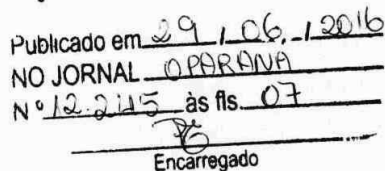 Publicado em 29 / 06 / 2016
NO JORNAL O PARANÁ
Nº 12.245 às fls. 07
Encarregado